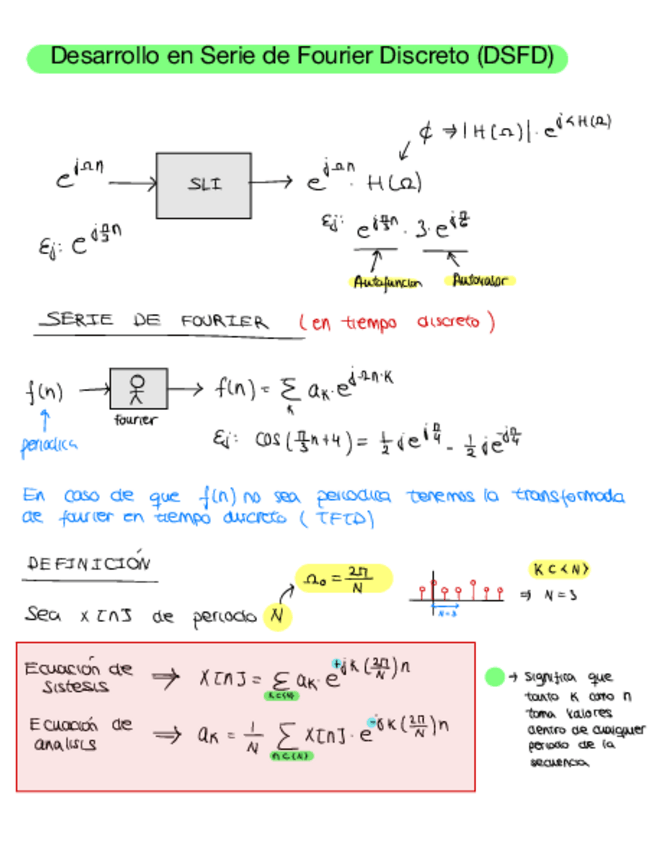 Desarrollo en Serie de Fourier Discreto (DSFD)
₵ ⇒ |H(Ω)| · e^{j∢H(Ω)}
e^{jΩn} → SLI → e^{jΩn} · H(Ω)
Ej: e^{j π/3 n}
Ej: e^{j π/3 n} · 3 · e^{j π/6}
Autofuncion Autovalor
SERIE DE FOURIER (en tiempo discreto)
f(n) → → f(n) = Σ_K a_K · e^{jΩn·K}
fourier
periodica
Ej: cos(π/3 n + 4) = 1/2 j e^{j π/4} - 1/2 j e^{-j π/4}
En caso de que f(n) no sea periodica tenemos la transformada
de fourier en tiempo discreto (TFTD)
DEFINICIÓN
Ω₀ = 2π/N
K ⊂ <N>
⇒ N = 3
N=3
Sea x[n] de periodo N
Ecuación de
sistesis ⇒ x[n] = Σ_{K⊂<N>} a_K · e^{+jK(2π/N)n}
Ecuación de
analisis ⇒ a_K = 1/N Σ_{n⊂<N>} x[n] · e^{-jK(2π/N)n}
→ Significa que
tanto K como n
toma valores
dentro de cualquier
periodo de la
secuencia